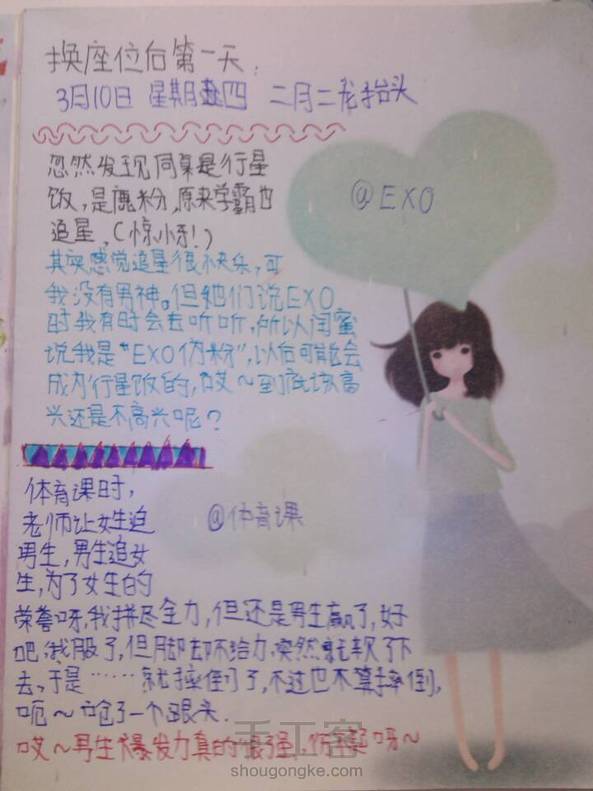 换座位后第一天.
3月10日 星期四 二月二龙抬头
忽然发现同桌是行星
饭,是鹿粉,原来学霸也
追星,(惊讶!)
@EXO
其实感觉追星很不快乐,可
我没有男神。但她们说EXO
时我有时会去听听,所以闺蜜
说我是“EXO伪粉”,以后可能会
成为行星饭的,哎~到底该高
兴还是不高兴呢?
体育课时,
老师让女生追
男生,男生追女
生,为了女生的
@体育课
荣誉呀,我拼尽全力,但还是男生赢了,好
吧,我服了,但脚却不给力,突然就软了下
去,于是……就摔倒了,不过也不算摔倒,
呃~呛了一个跟头.
哎~男生爆发力真的很强,伤不起呀~
手工客
shougongke.com